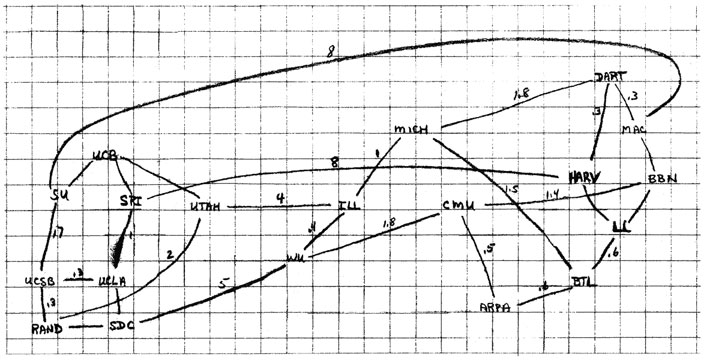 8
DART
1.8
.3
.3
MAC
MICH
UCB
1
8
1.5
HARV
BBN
SU
SRI
UTAH
4
ILL
CMU
1.4
LL
.7
1
.4
1.8
.5
.6
2
WU
UCSB
.3
UCLA
5
.6
BTL
.3
ARPA
RAND
SDC